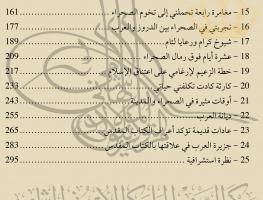 15 - مغامرة رابعة تحملني إلى تخوم الصحراء 161
16 - تجربتي في الصحراء بين الدروز والعرب 177
17 - شيوخ كرام ورعايا لئام 189
18 - عشرة أيام فوق رمال الصحراء 209
19 - خطة الزعيم لإرغامي على اعتناق الإسلام 217
20 - كارثة كادت تكلفني حياتي 231
21 - أوقات مثيرة في الصحراء والمدينة 243
22 - ديانة العرب 255
23 - عادات قديمة تؤكد أعراف الكتاب المقدس 265
24 - جزيرة العرب في علاقتها بالكتاب المقدس 283
25 - نظرة استشرافية 295